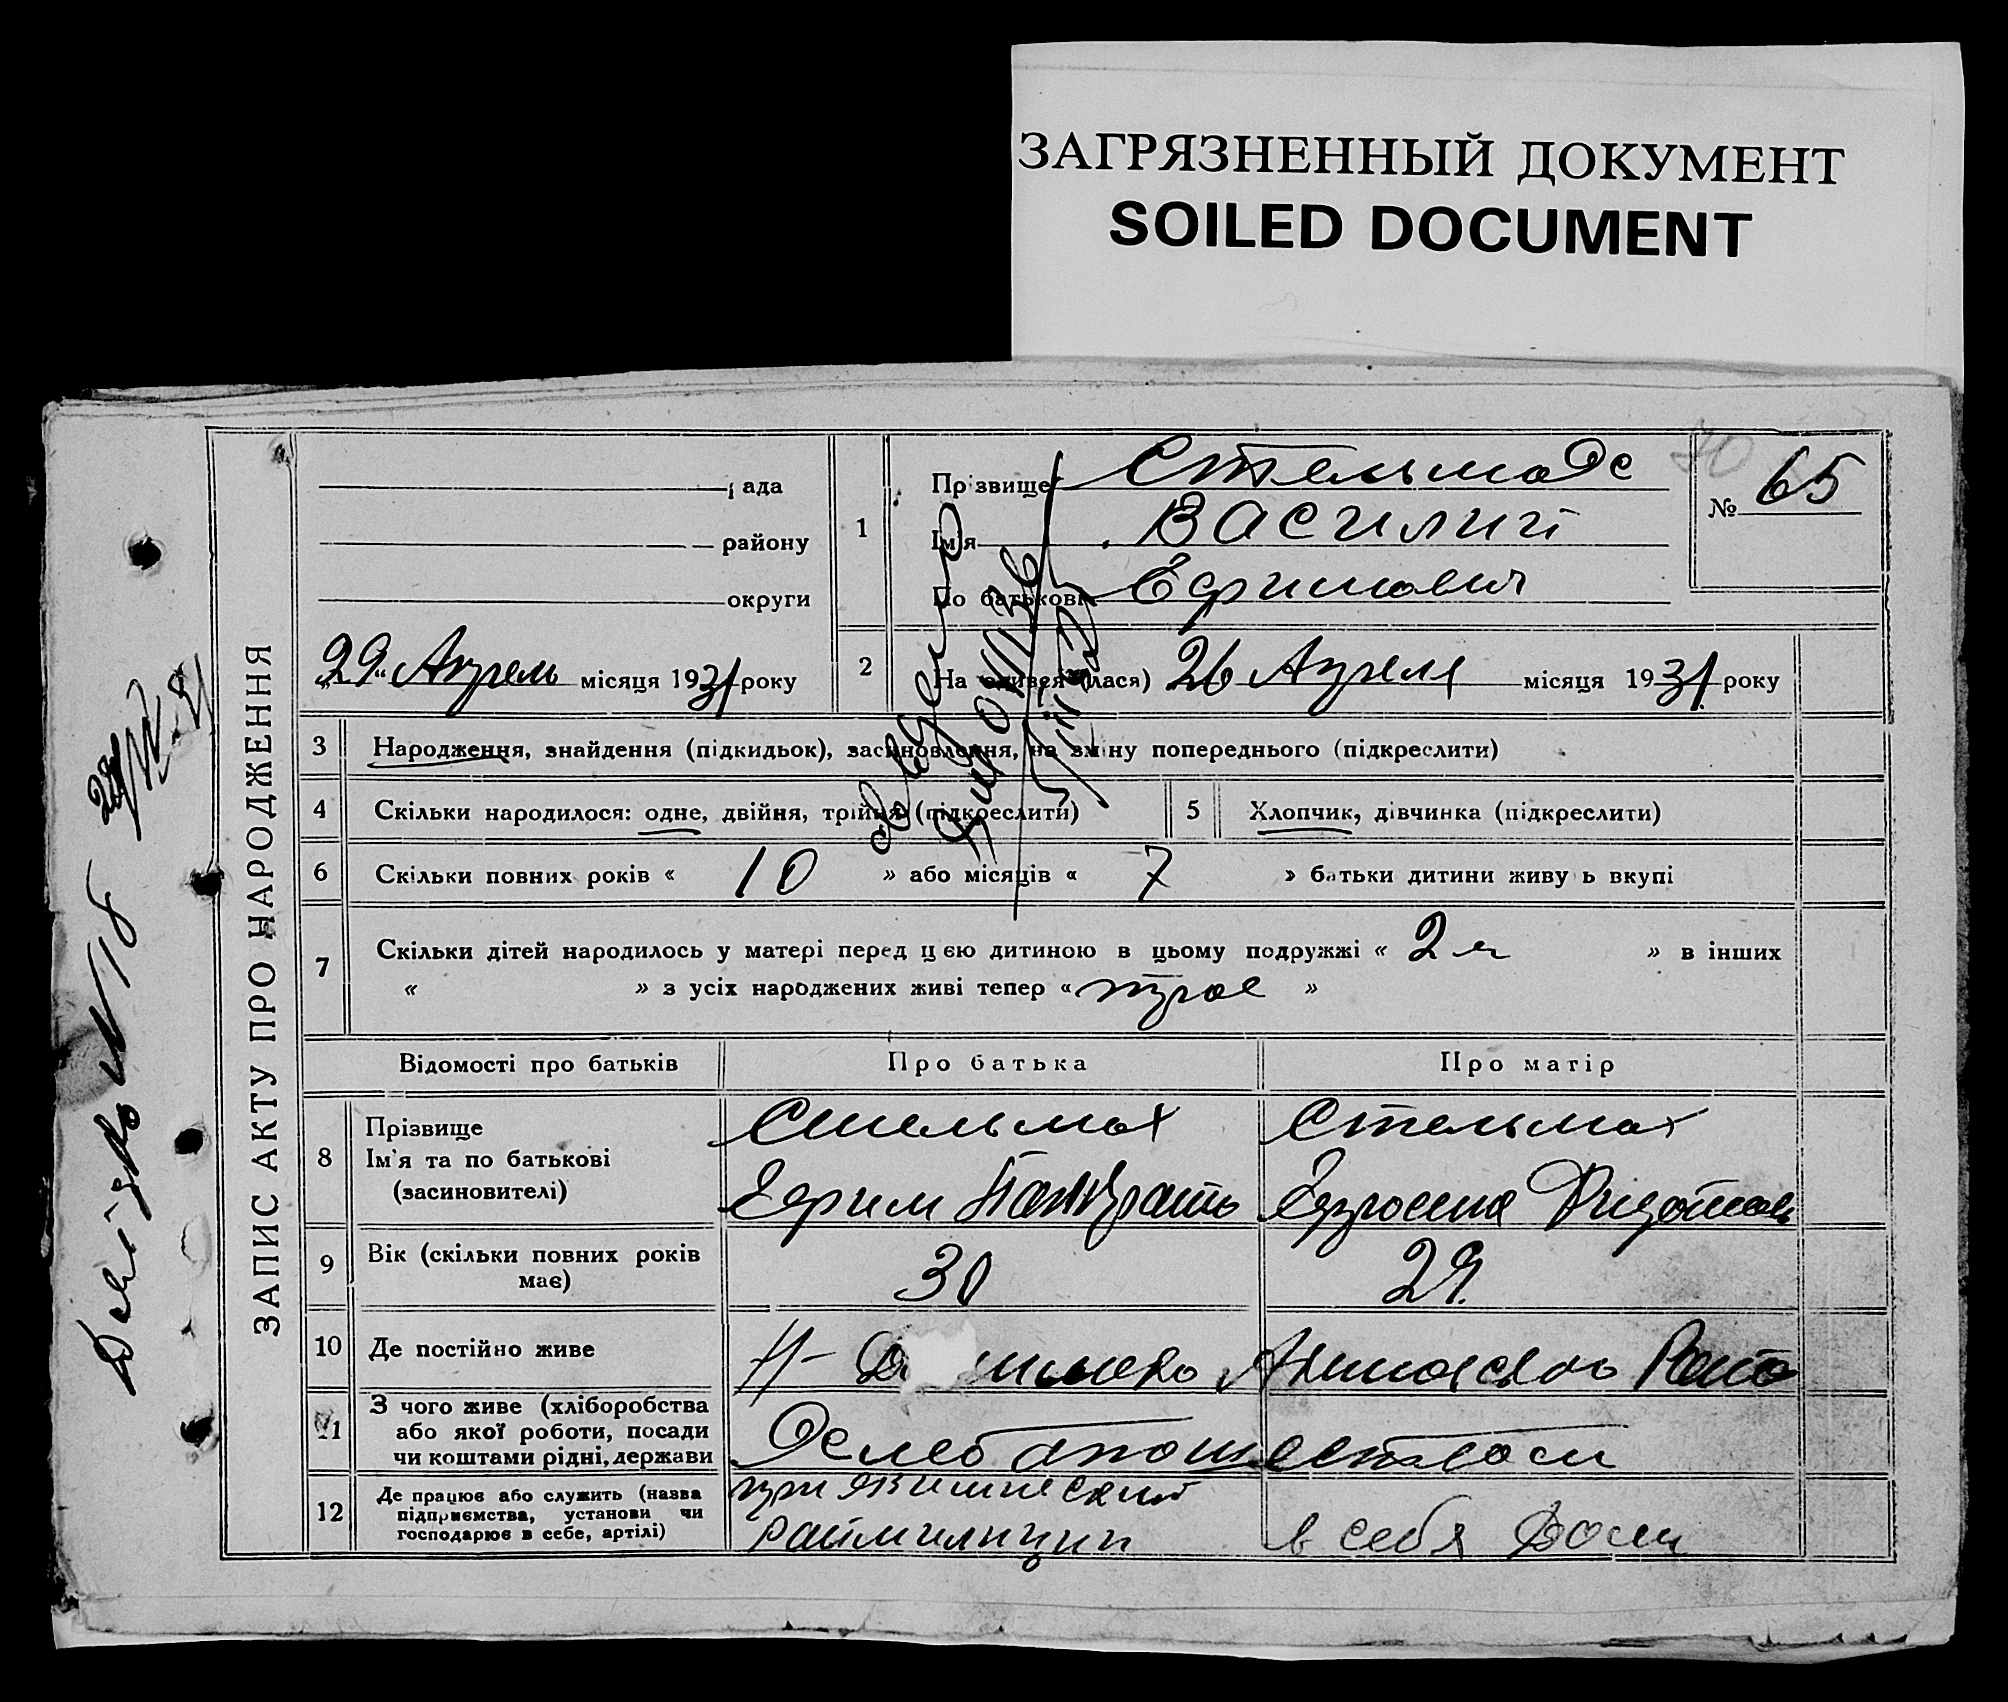 ЗАГРЯЗНЕННЫЙ ДОКУМЕНТ
SOILED DOCUMENT
ЗАПИС АКТУ ПРО НАРОДЖЕННЯ
ада
району
округи
„29“ Апрель місяця 1931 року
1
Прізвище Стельмах
Ім'я Василий
По батькові Ефимович
№ 65
70
2
На одився (лася) 26 Апреля місяця 1931 року
3 Народження, знайдення (підкидьок), засиновлення, на зміну попереднього (підкреслити)
4 Скільки народилося: одне, двійня, трійня (підкреслити)
5 Хлопчик, дівчинка (підкреслити)
6 Скільки повних років « 10 » або місяців « 7 » батьки дитини живу ь вкупі
7 Скільки дітей народилось у матері перед цією дитиною в цьому подружжі « 2 » в інших
« » з усіх народжених живі тепер « трое »
Відомості про батьків Про батька Про матір
8 Прізвище
Ім'я та по батькові
(засиновителі)
Стельмах
Ефим
Стельмах
9 Вік (скільки повних років
має)
30
29
10 Де постійно живе
11 З чого живе (хліборобства
або якої роботи, посади
чи коштами рідні, держави
12 Де працює або служить (назва
підприємства, установи чи
господарює в себе, артілі)
при
раймилиции
в себя Доми